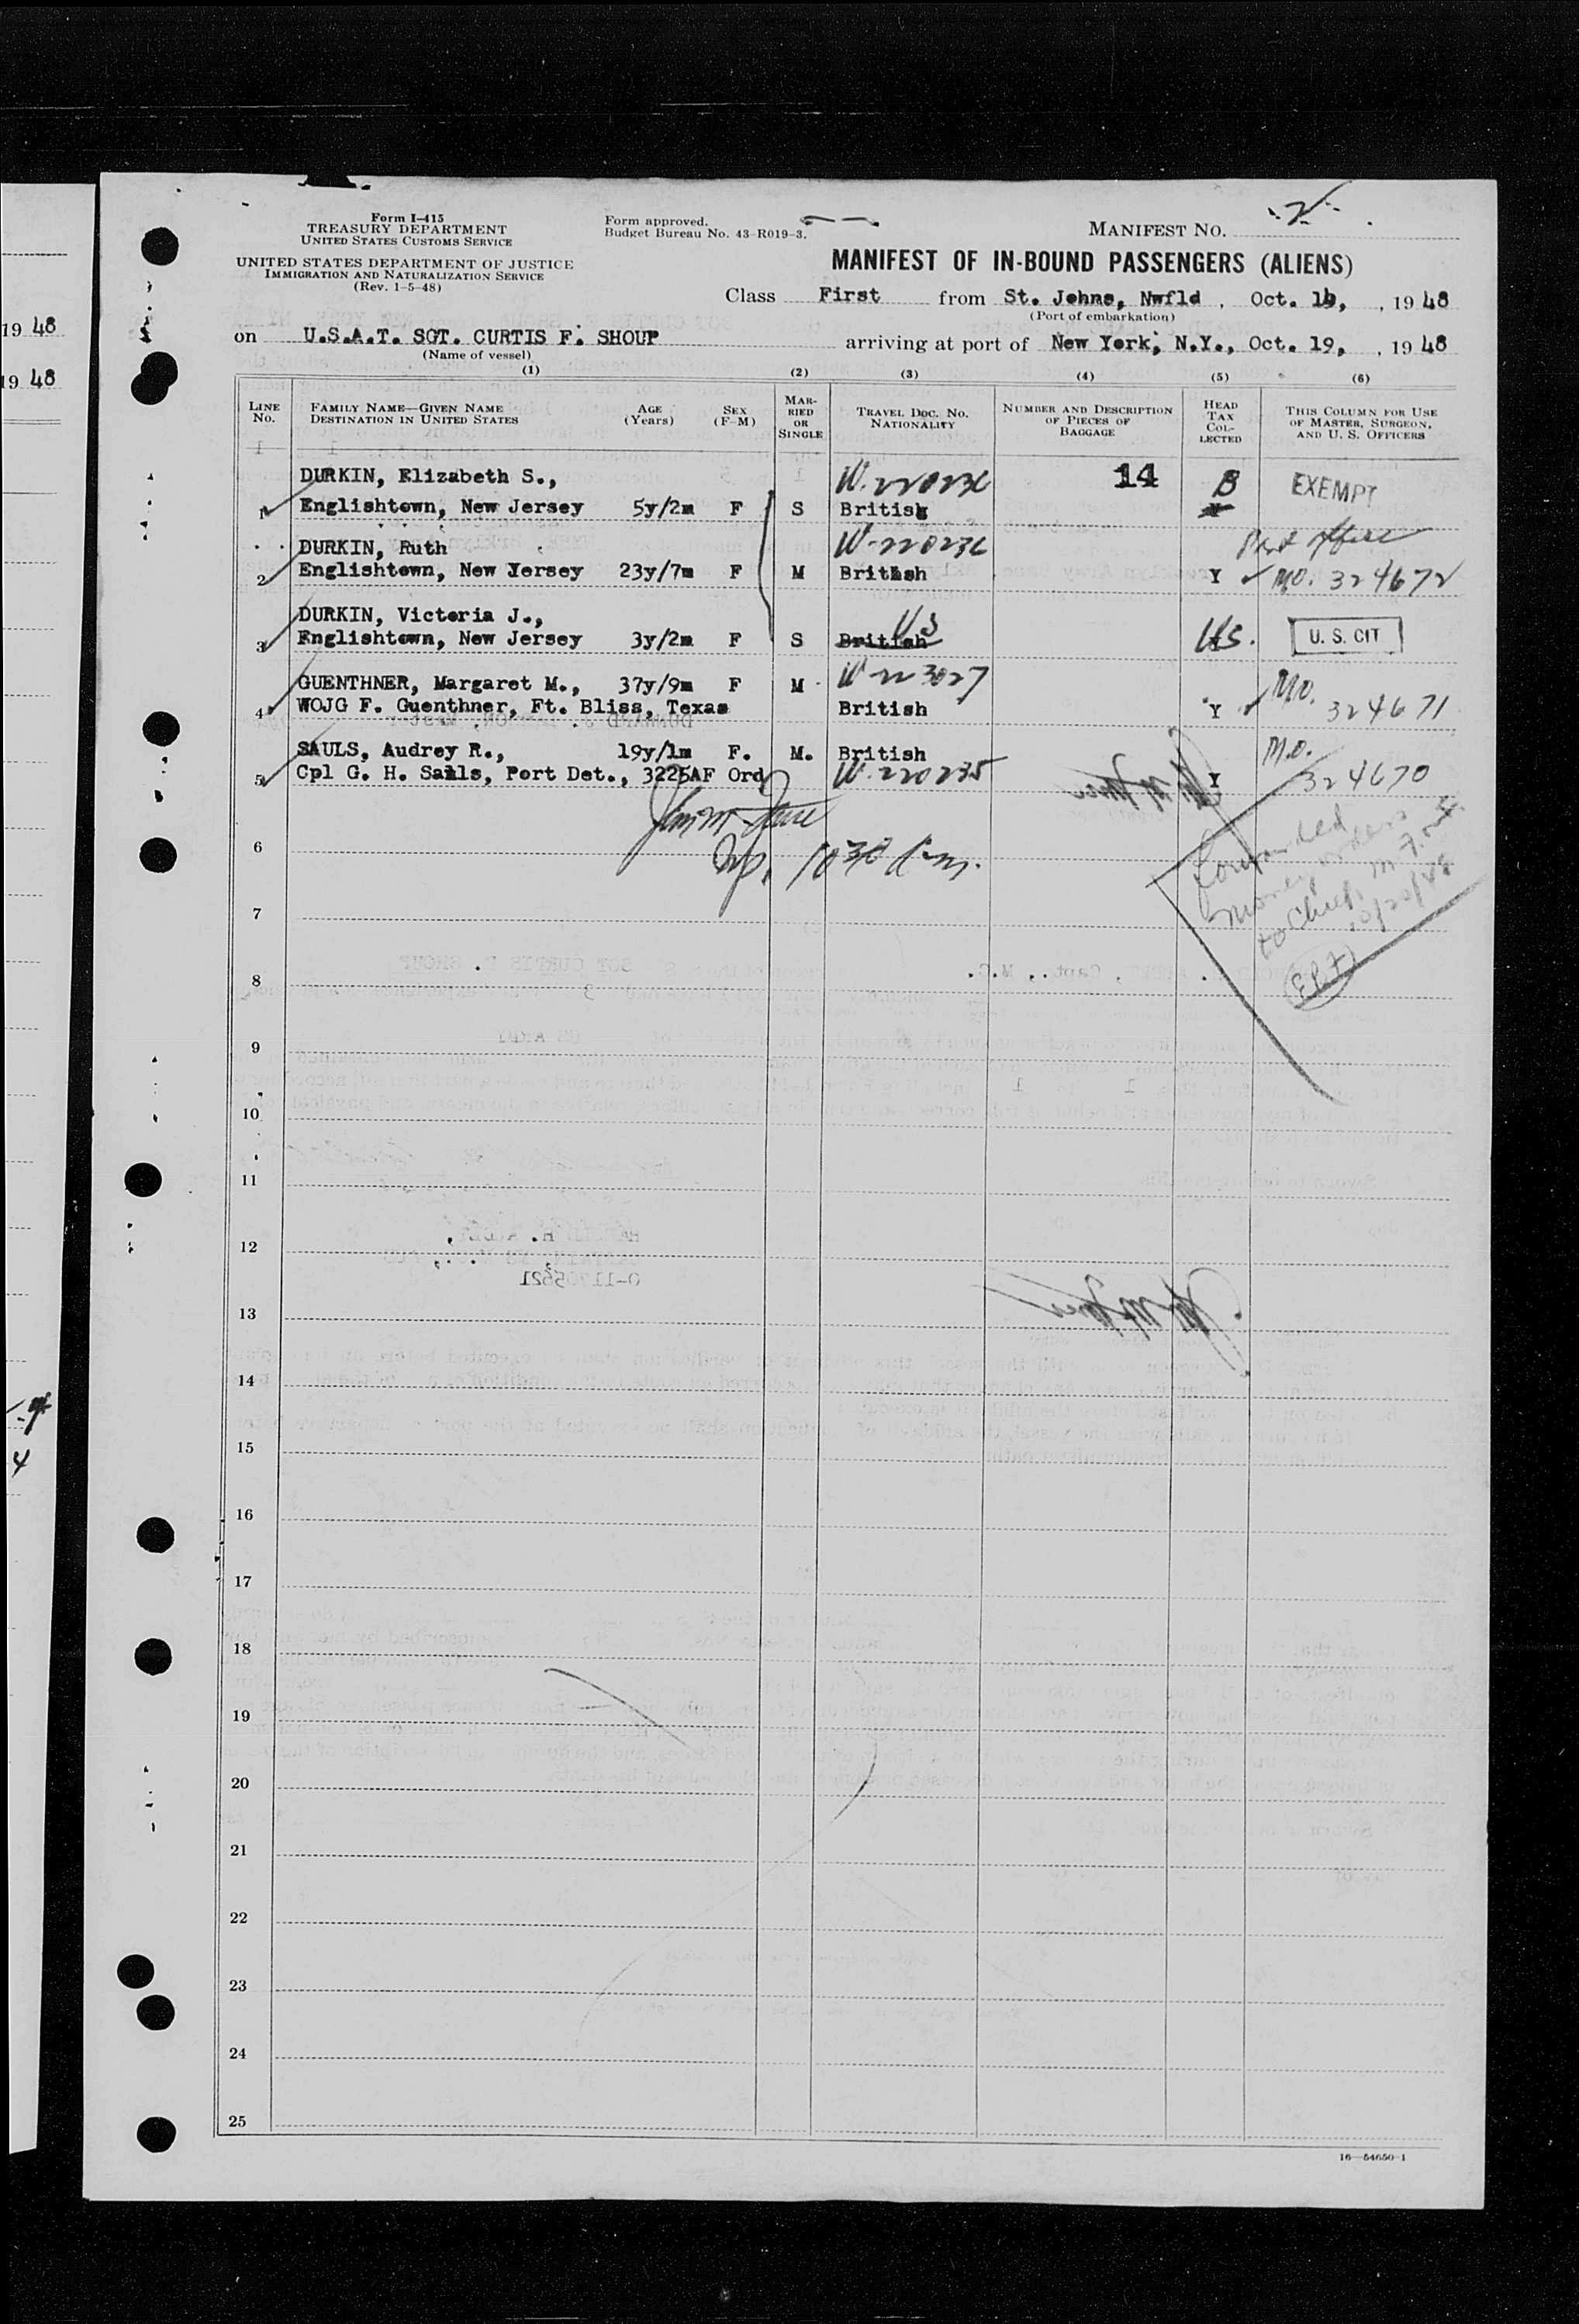 19 48
19 48
4
Form I-415
TREASURY DEPARTMENT
UNITED STATES CUSTOMS SERVICE
UNITED STATES DEPARTMENT OF JUSTICE
IMMIGRATION AND NATURALIZATION SERVICE
(Rev. 1-5-48)
Form approved.
Budget Bureau No. 43-R019-3.
MANIFEST NO. 2
MANIFEST OF IN-BOUND PASSENGERS (ALIENS)
Class First from St. Johns, Nwfld, Oct. 1, 1948
(Port of embarkation)
on U.S.A.T. SGT. CURTIS F. SHOUP arriving at port of New York, N.Y., Oct. 19, 1948
(Name of vessel)
(1) (2) (3) (4) (5) (6)
LINE NO.
FAMILY NAME—GIVEN NAME
DESTINATION IN UNITED STATES
AGE (Years)
SEX (F-M)
MARRIED OR SINGLE
TRAVEL DOC. NO.
NATIONALITY
NUMBER AND DESCRIPTION OF PIECES OF BAGGAGE
HEAD TAX COLLECTED
THIS COLUMN FOR USE OF MASTER, SURGEON, AND U. S. OFFICERS
DURKIN, Elizabeth S., W-220236 14 B EXEMPT
1 Englishtown, New Jersey 5y/2m F S British
DURKIN, Ruth W-220236
2 Englishtown, New Jersey 23y/7m F M British Y MO. 324672
DURKIN, Victoria J., US
3 Englishtown, New Jersey 3y/2m F S British US. U. S. CIT
GUENTHNER, Margaret M., 37y/9m F M W-223027 MO.
4 WOJG F. Guenthner, Ft. Bliss, Texas British Y 324671
SAULS, Audrey R., 19y/1m F. M. British M.O.
5 Cpl G. H. Sauls, Port Det., 3225AF Ord W-220235 Y 324670
Insp. 1030 a.m.
Forwarded
money orders
to Chief,
10/20/48
6
7
8
9
10
11
12
13
14
15
16
17
18
19
20
21
22
23
24
25
16—54650-1